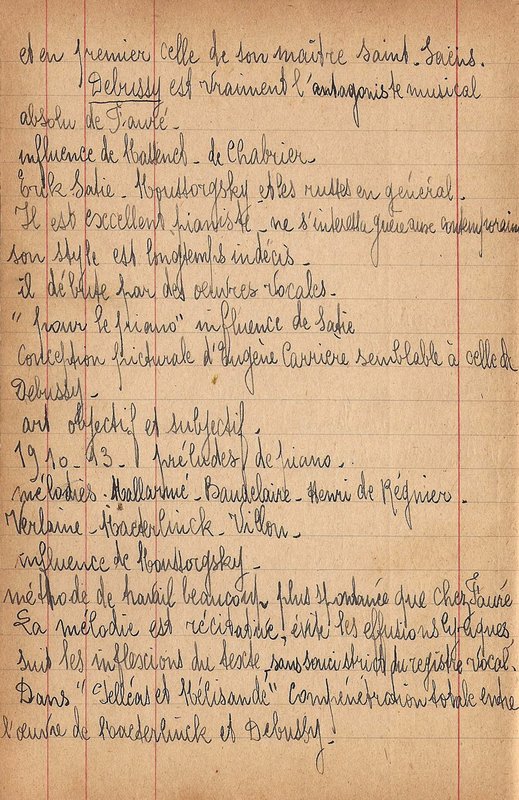 et en premier celle de son maître Saint-Saëns.
Debussy est vraiment l'antagoniste musical
absolu de Fauré.
influence de Massenet - de Chabrier.
Erik Satie - Moussorgsky et les russes en général.
Il est excellent pianiste - ne s'interessa guère aux contemporains
son style est longtemps indécis.
il débute par des oeuvres vocales.
"pour le piano" influence de Satie
Conception picturale d'Eugène Carrière semblable à celle de
Debussy.
art objectif et subjectif.
1910-13 - préludes de piano.
mélodies - Mallarmé - Baudelaire - Henri de Régnier.
Verlaine - Maeterlinck - Villon.
influence de Moussorgsky.
méthode de travail beaucoup plus spontanée que chez Fauré
La mélodie est récitative, évite les effusions lyriques,
suit les inflexions du texte, sans souci strict du registre vocal.
Dans "Pelléas et Mélisande" compénétration totale entre
l'œuvre de Maeterlinck et Debussy.